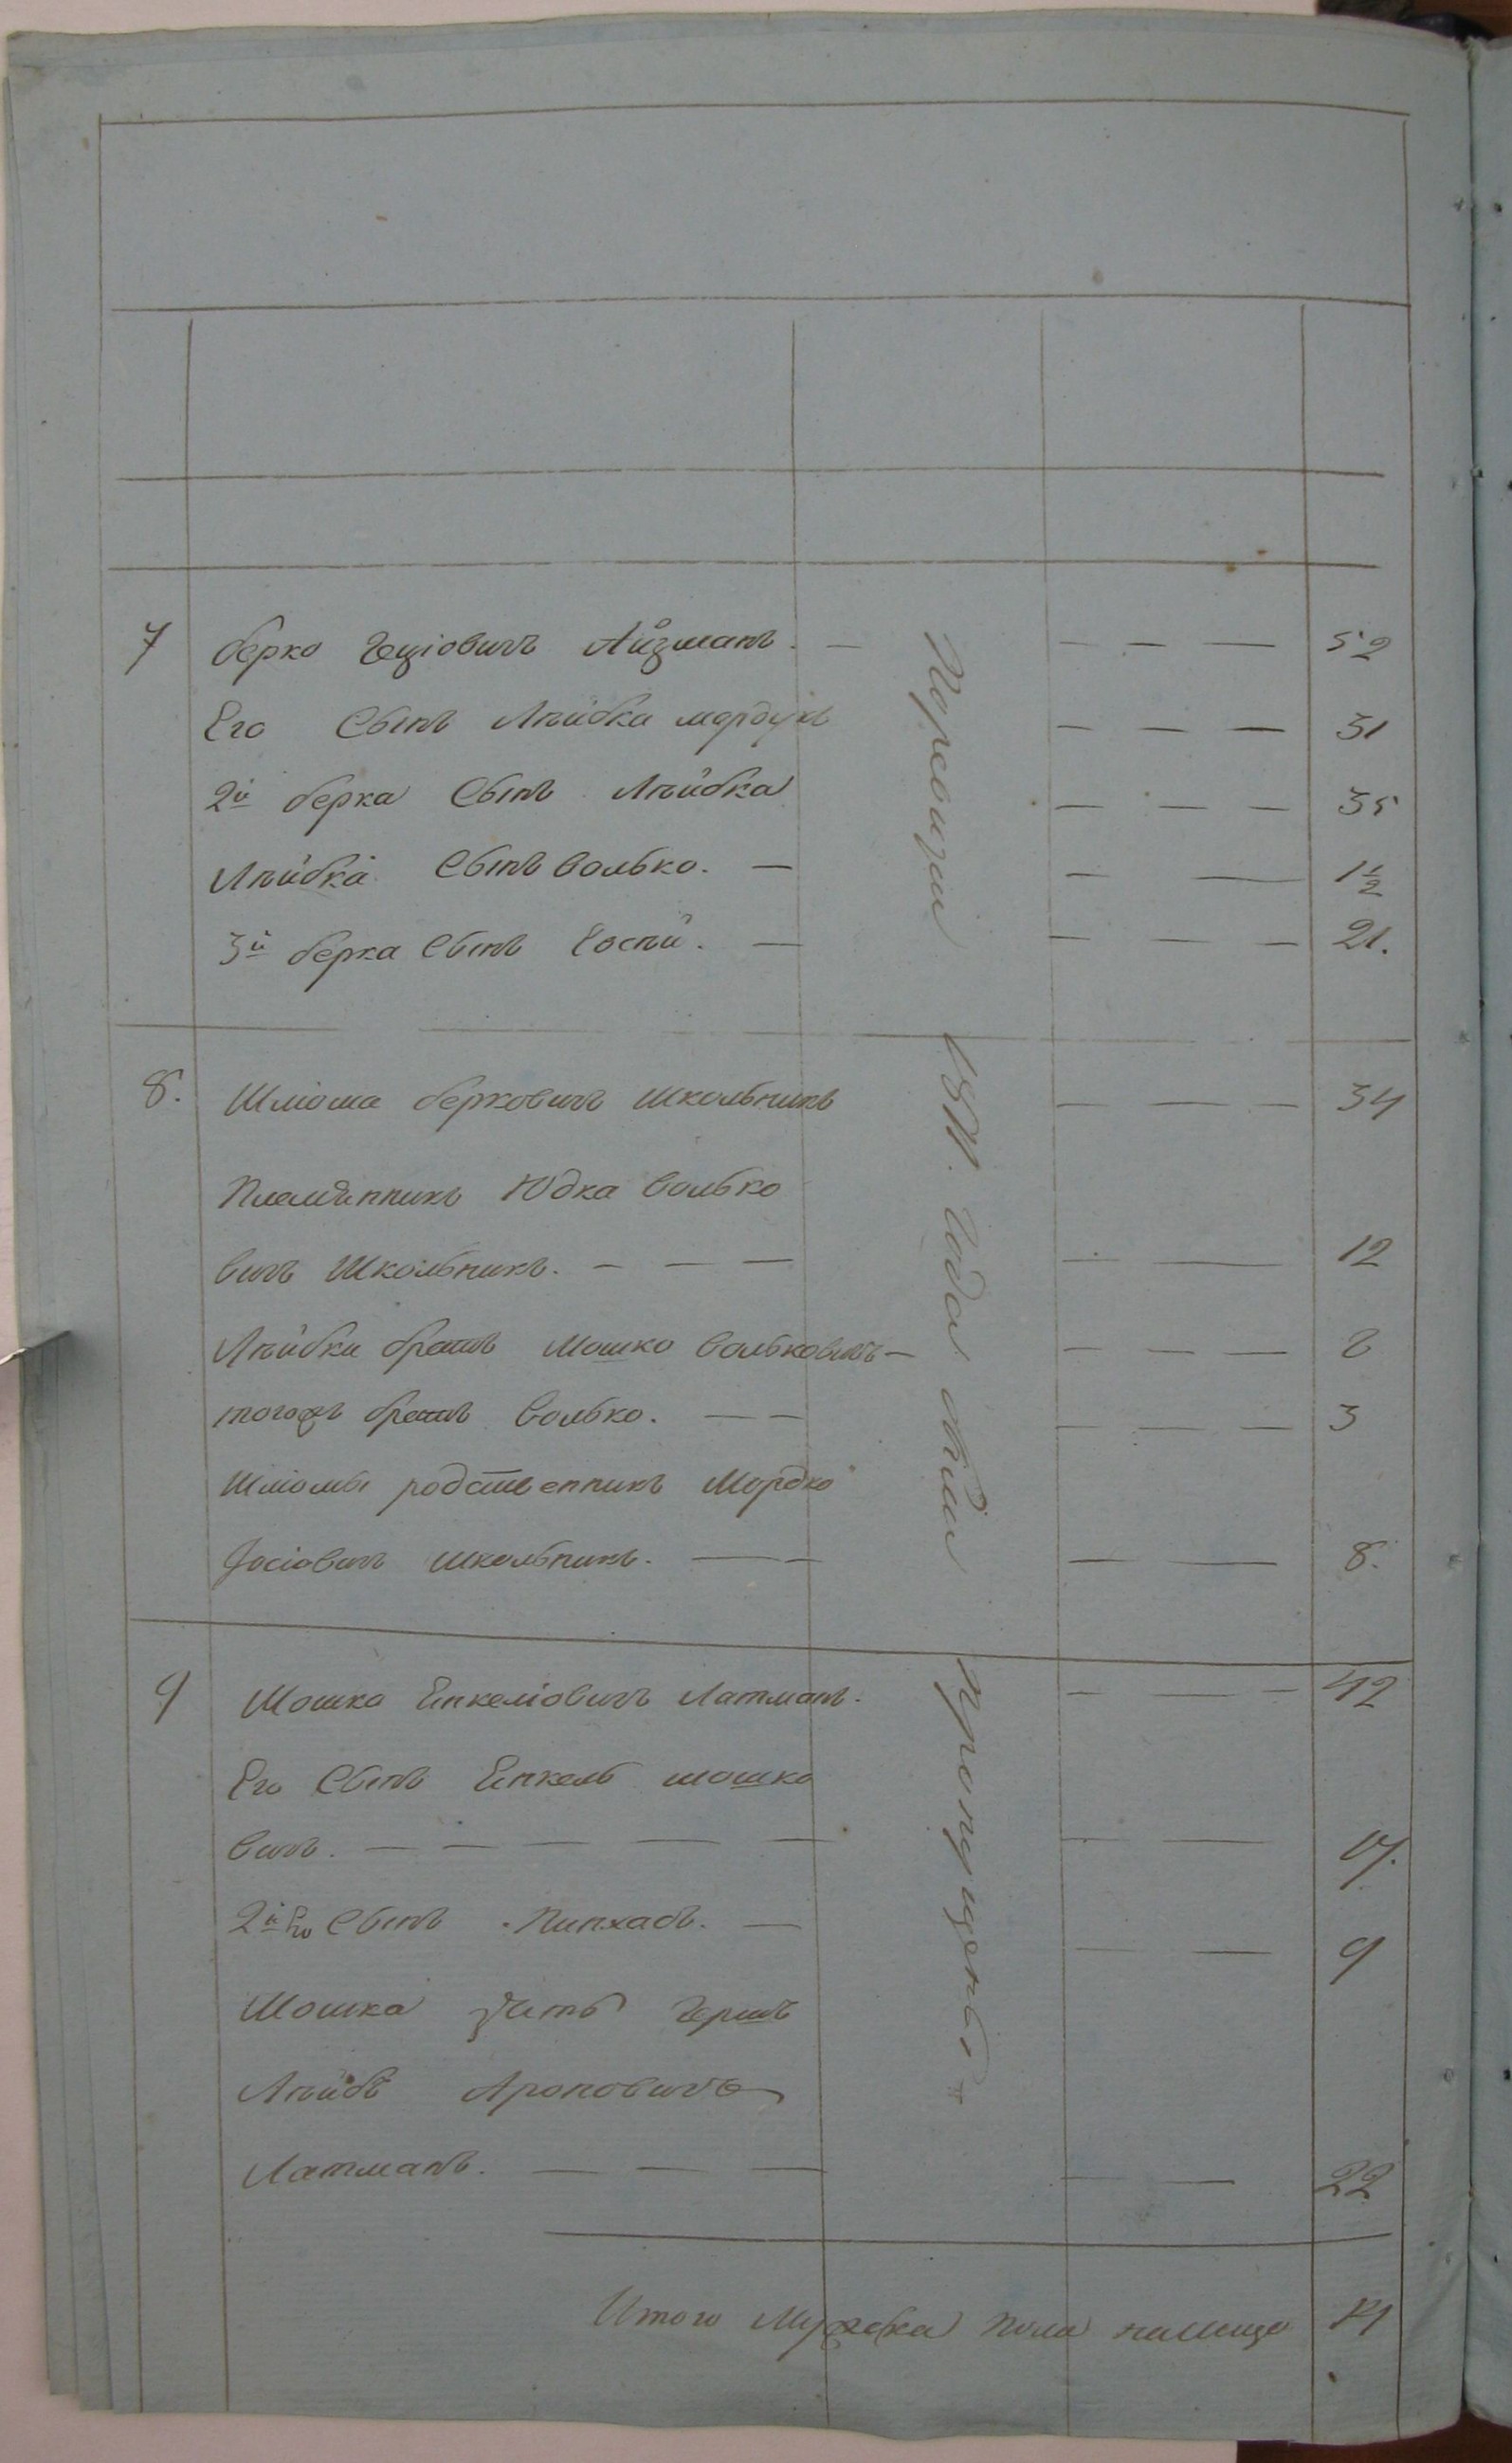 7 Берко Геціовичъ Айзманъ. — — — — 52
Его Сынъ Лейбка мордухъ — — — 31
2й берка Сынъ Лейбка — — — 35
Лейбка Сынъ Волько. — — — 1½
3й берка Сынъ Еосей. — — — — 21.
По ревизіи
8. Шліома берковичъ Школьникъ — — — 34
Племянникъ Юдка Волько
вичъ Школьникъ. — — — — — 12
Лейбки братъ Мошко Вольковичъ — — — — 8
тогожъ братъ Волько. — — — — — 3
Шліомы родственникъ Мордко
Іосіовичъ школьникъ. — — — — 8.
1811. Года были
9 Мошко Енкеліовичъ Латманъ. — — — 42
Его Сынъ Енкель мошко
вичъ. — — — — — — — 17.
2й Его Сынъ Пинхасъ. — — — 9
Мошка зять Гершъ
Лейбъ Ароновичъ
Латманъ. — — — — — 22
пропущены
Итого Мужеска пола налицо 14